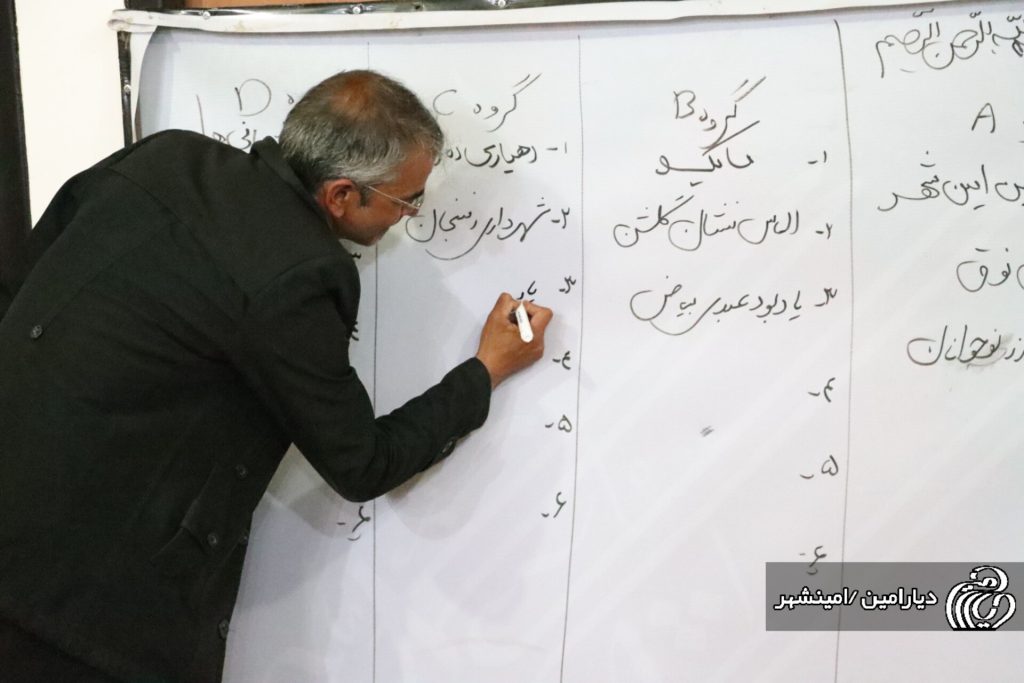 الله الرحمن الرحیم
A
این شهر
نوق
نوجوانان
گروه B
۱- مانگیو
۲- الماس نشان گلشن
۳- یادبود عبدی بیاض
۴-
۵-
۶-
گروه C
۱- دهیاری
۲- شهرداری رفسنجان
۳- یاد
۴-
۵-
۶-
D
۶-
دیارامین /امینشهر